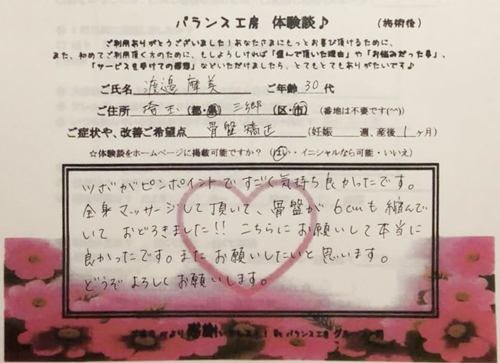 バランス工房 体験談♪ (施術後)
ご利用ありがとうございました!あなたさまにもっとお喜び頂けるために、
また、初めてご利用頂く方のために、もしよろしければ「選んで頂いた理由」や「お悩みだった事」、
「サービスを受けての感想」などいただけましたら、とてもとてもありがたいです♪
ご氏名 渡邉麻美 ご年齢 30代
ご住所 埼玉(都・県) 三郷 (区・市)(番地は不要です(^^))
ご症状や、改善ご希望点 骨盤矯正 (妊娠 週、産後1ヶ月)
☆体験談をホームページに掲載可能ですか? (はい・イニシャルなら可能・いいえ)
ツボがピンポイントですごく気持ち良かったです。
全身マッサージして頂いて、骨盤が6cmも縮んで
いておどろきました!!こちらにお願いして本当に
良かったです。またお願いしたいと思います。
どうぞよろしくお願いします。
バランス工房